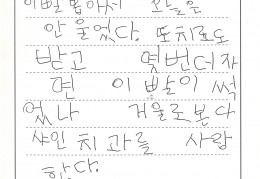 이빨 뽑아서 오늘은
안 울었다. 또치료도
받고 몇번더자
면 이 빨이 썩
었나 거울로본다
샤인 치과를 사랑
한다.